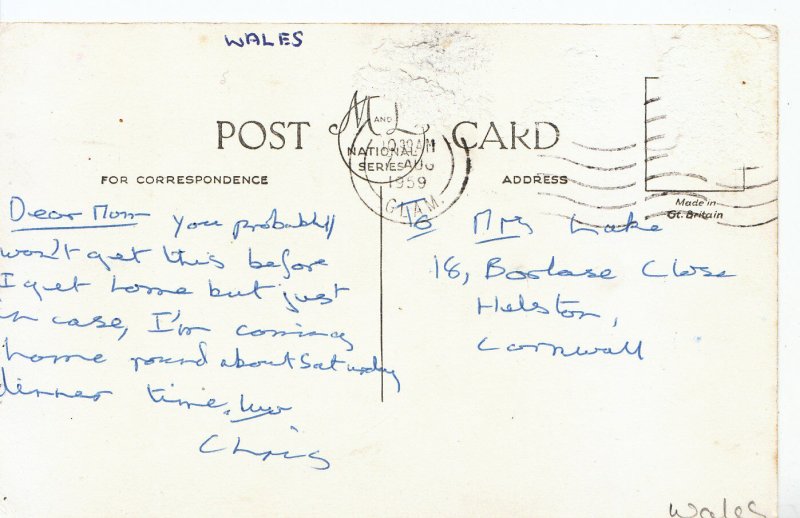 WALES
POST M AND L CARD
NATIONAL SERIES
10 30AM
AUG
1959
GLAM.
FOR CORRESPONDENCE
ADDRESS
Made in
Gt. Britain
Dear Mom you probably
won't get this before
I get home but just
in case, I'm coming
home round about Saturday
dinner time. luv
Chris
To Mrs Lake
18, Borlase Close
Helston,
Cornwall
Wales